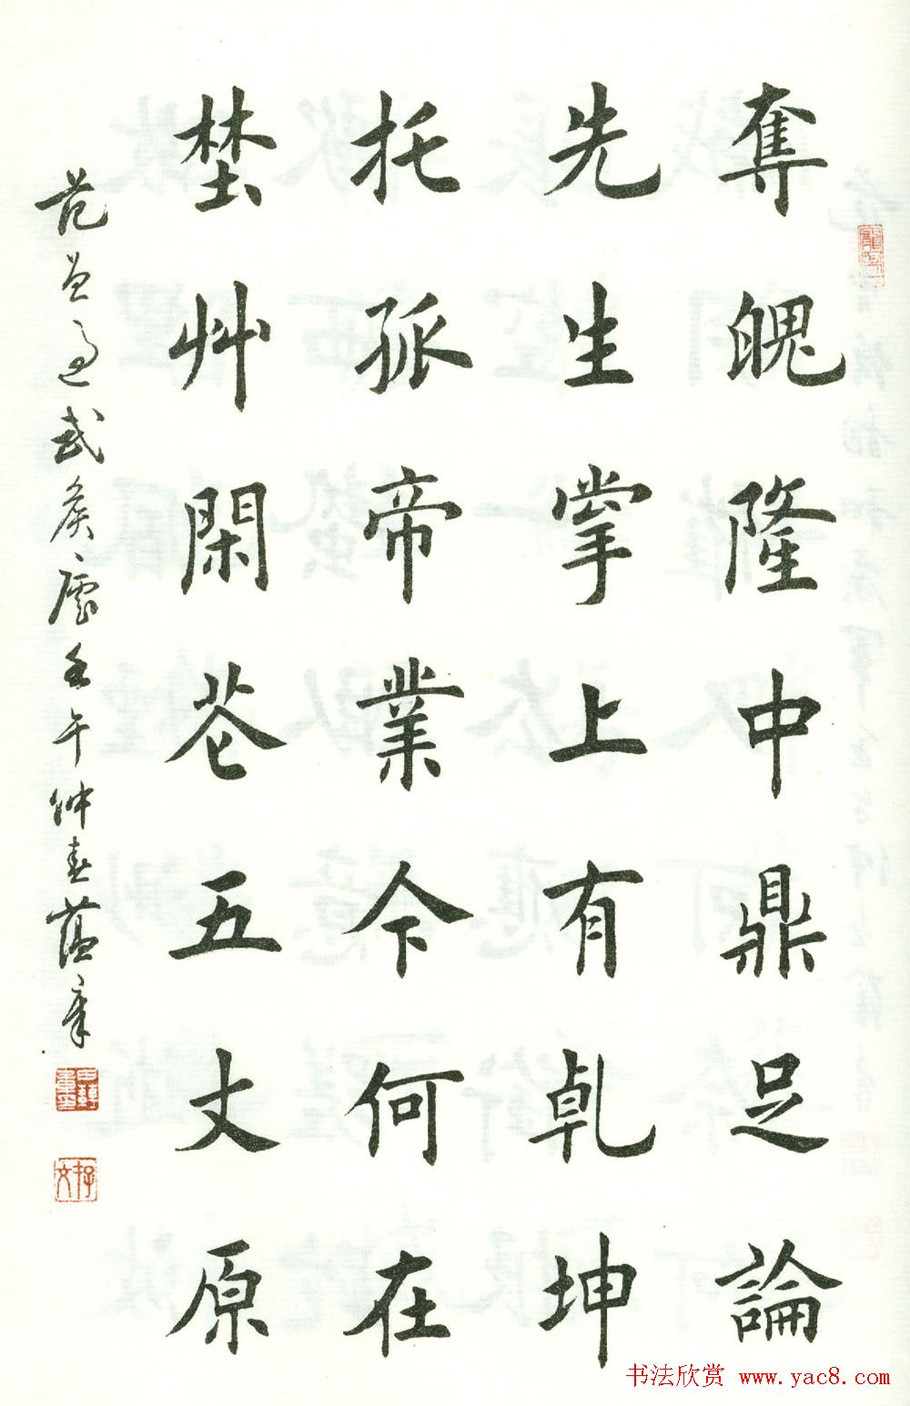 奪魄隆中鼎足論
先生掌上有乾坤
托孤帝業今何在
埜艸閑花五丈原
范曾過武侯廬壬午仲春蕴章
书法欣赏 www.yac8.com